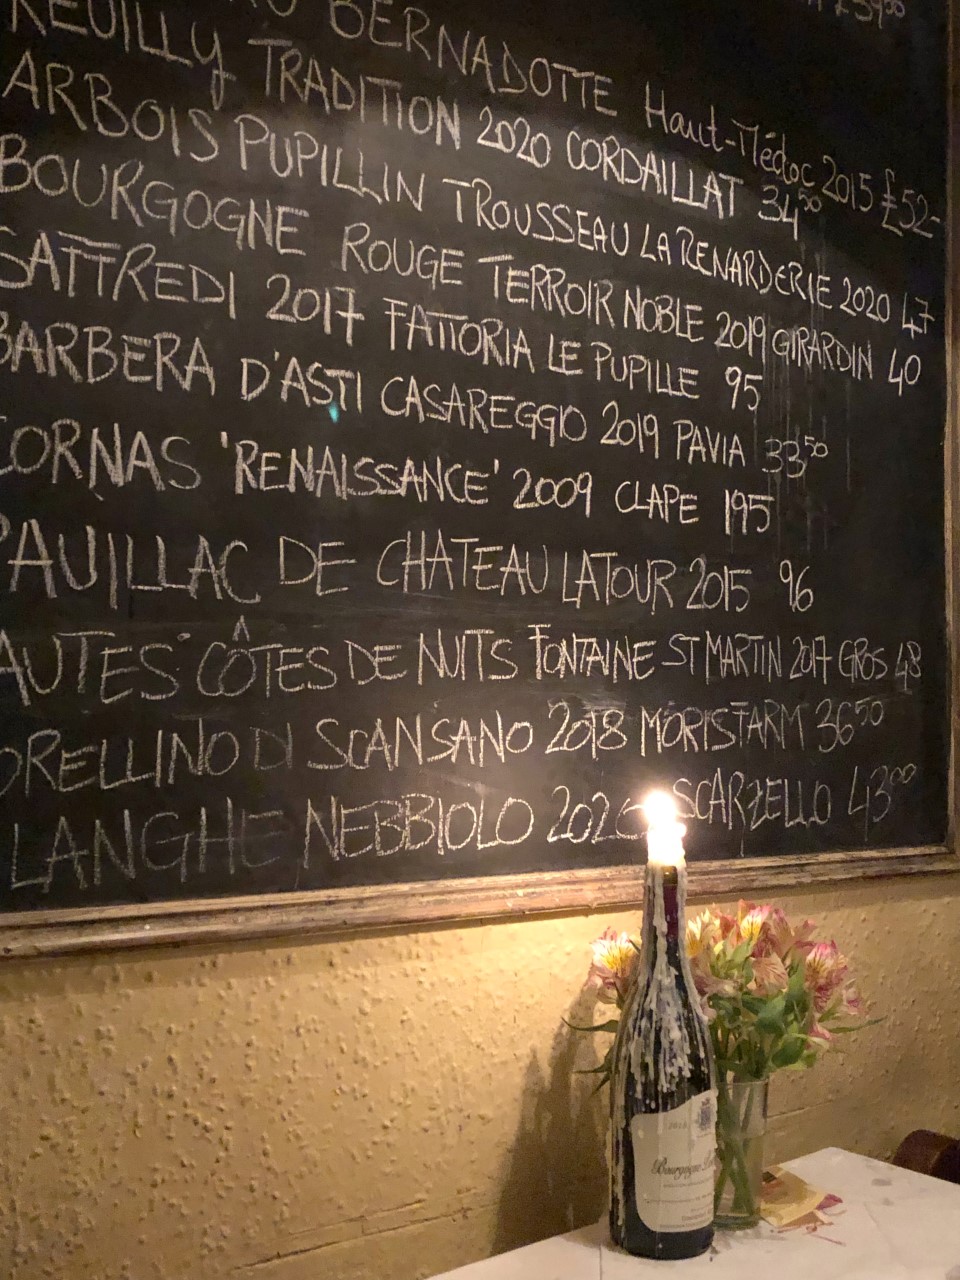 £59⁵⁰
BERNADOTTE Haut-Médoc 2015 £52-
REUILLY TRADITION 2020 CORDAILLAT 34⁵⁰
ARBOIS PUPILLIN TROUSSEAU LA RENARDERIE 2020 47
BOURGOGNE ROUGE TERROIR NOBLE 2019 GIRARDIN 40
SAFFREDI 2017 FATTORIA LE PUPILLE 95
BARBERA D'ASTI CASAREGGIO 2019 PAVIA 33⁵⁰
CORNAS 'RENAISSANCE' 2009 CLAPE 195
PAUILLAC DE CHATEAU LATOUR 2015 96
AUTES CÔTES DE NUITS FONTAINE ST MARTIN 2017 GROS 48
ORELLINO DI SCANSANO 2018 MORISFARM 36⁵⁰
LANGHE NEBBIOLO 2020 SCARZELLO 43⁰⁰
Bourgogne